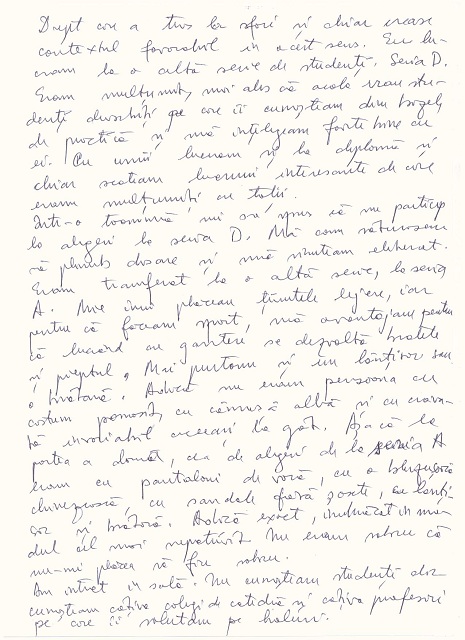 Drept care a tras la sfori și chiar crease
contextul favorabil în acest sens. Eu lu-
cram la o altă serie de studenți. Seria D.
Eram mulțumit, mai ales că acolo erau stu-
denți deosebiți pe care îi cunoșteam din
de practică și mă înțelegeam foarte bine cu
ei. Cu unii lucram și la diplomă și
chiar scoteam lucruri interesante de care
eram mulțumiți cu toții.
Într-o toamnă mi s-a spus că nu particip
la alegeri la seria D. Mă cam săturasem
să plimb dosare și mă simțeam eliberat.
Eram transferat la o altă serie, la seria
A. Mie îmi plăceau ținutele lejere, iar
pentru că făceam sport, mă avantajau pentru
că lucrând cu gantere se dezvoltă brațele
și pieptul. Mai purtam și un lănțișor sau
o brățară. Adică nu eram persoana cu
costum pomosit, cu cămașă albă și cu crava-
tă invariabil la gât. Așa că la
partea a doua, cea de alegeri de la seria A
eram cu pantaloni de vară, cu o
cu sandale fără șosete, cu lănți-
șor și brățară. Adică exact, îmbrăcat în mo-
dul cel mai nepotrivit. Nu eram sobru că
nu-mi plăcea să fiu sobru.
Am intrat în sală. Nu cunoșteam studenții dar
cunoșteam câțiva colegi de catedră și câțiva profesori
pe care îi salutam pe holuri.